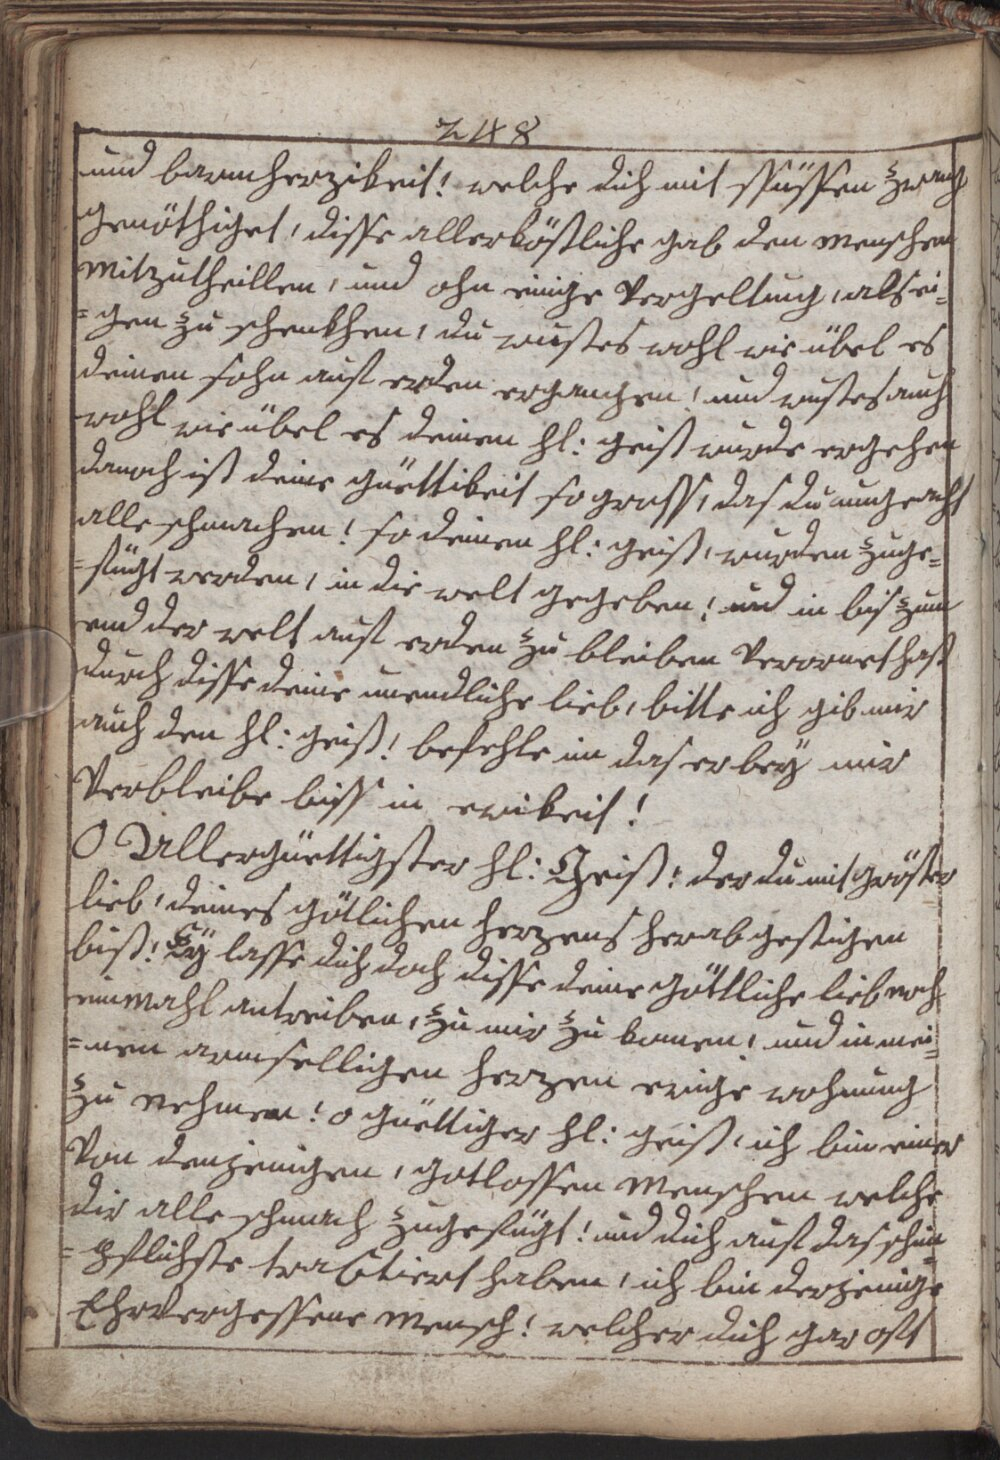 248
und barmherzikeit! welche dich mit ssüssen zwang
genöthiget, disse allerköstliche gab den menschen
mitzutheillen, und ohn einige Vergeltung, als ei-
=gen zu schenkhen, du wustes wohl wie übel es
deinen sohn auf erden ergangen! und wustes auch
wohl wie übel es deinen hl: geist wurde ergehen
danoch ist deine güettikeit so gross, das du ungeacht
alle schmachen! so deinem hl: geist, wurden zuge=
=fügt werden, in die welt gegeben! und in bis zum
end der welt auf erden zu bleiben Verornet hast
durch disse deine unendliche lieb, bitte ich gib mir
auch den hl: geist! befehle im das er bey mir
Verbleibe biss in ewikeit!
O Allergüettigster hl: Geist! der du mit gröster
lieb, deines götlichen herzens herab gestigen
bist! Ey lasse dich doch disse deine göttliche lieb noch
einmahl antreiben, zu mir zu komen! und in mei=
=nen armselligen herzen ewige wohnung
zu nehmen! o güettiger hl: geist, ich bin einer
Von denjenigen, gotlossen menschen welche
dir alle schmach zugefügt! und dich auf das schim
=pflichste tractiert haben, ich bin derjenige
Ehrvergessene mensch! welcher dich gar oft